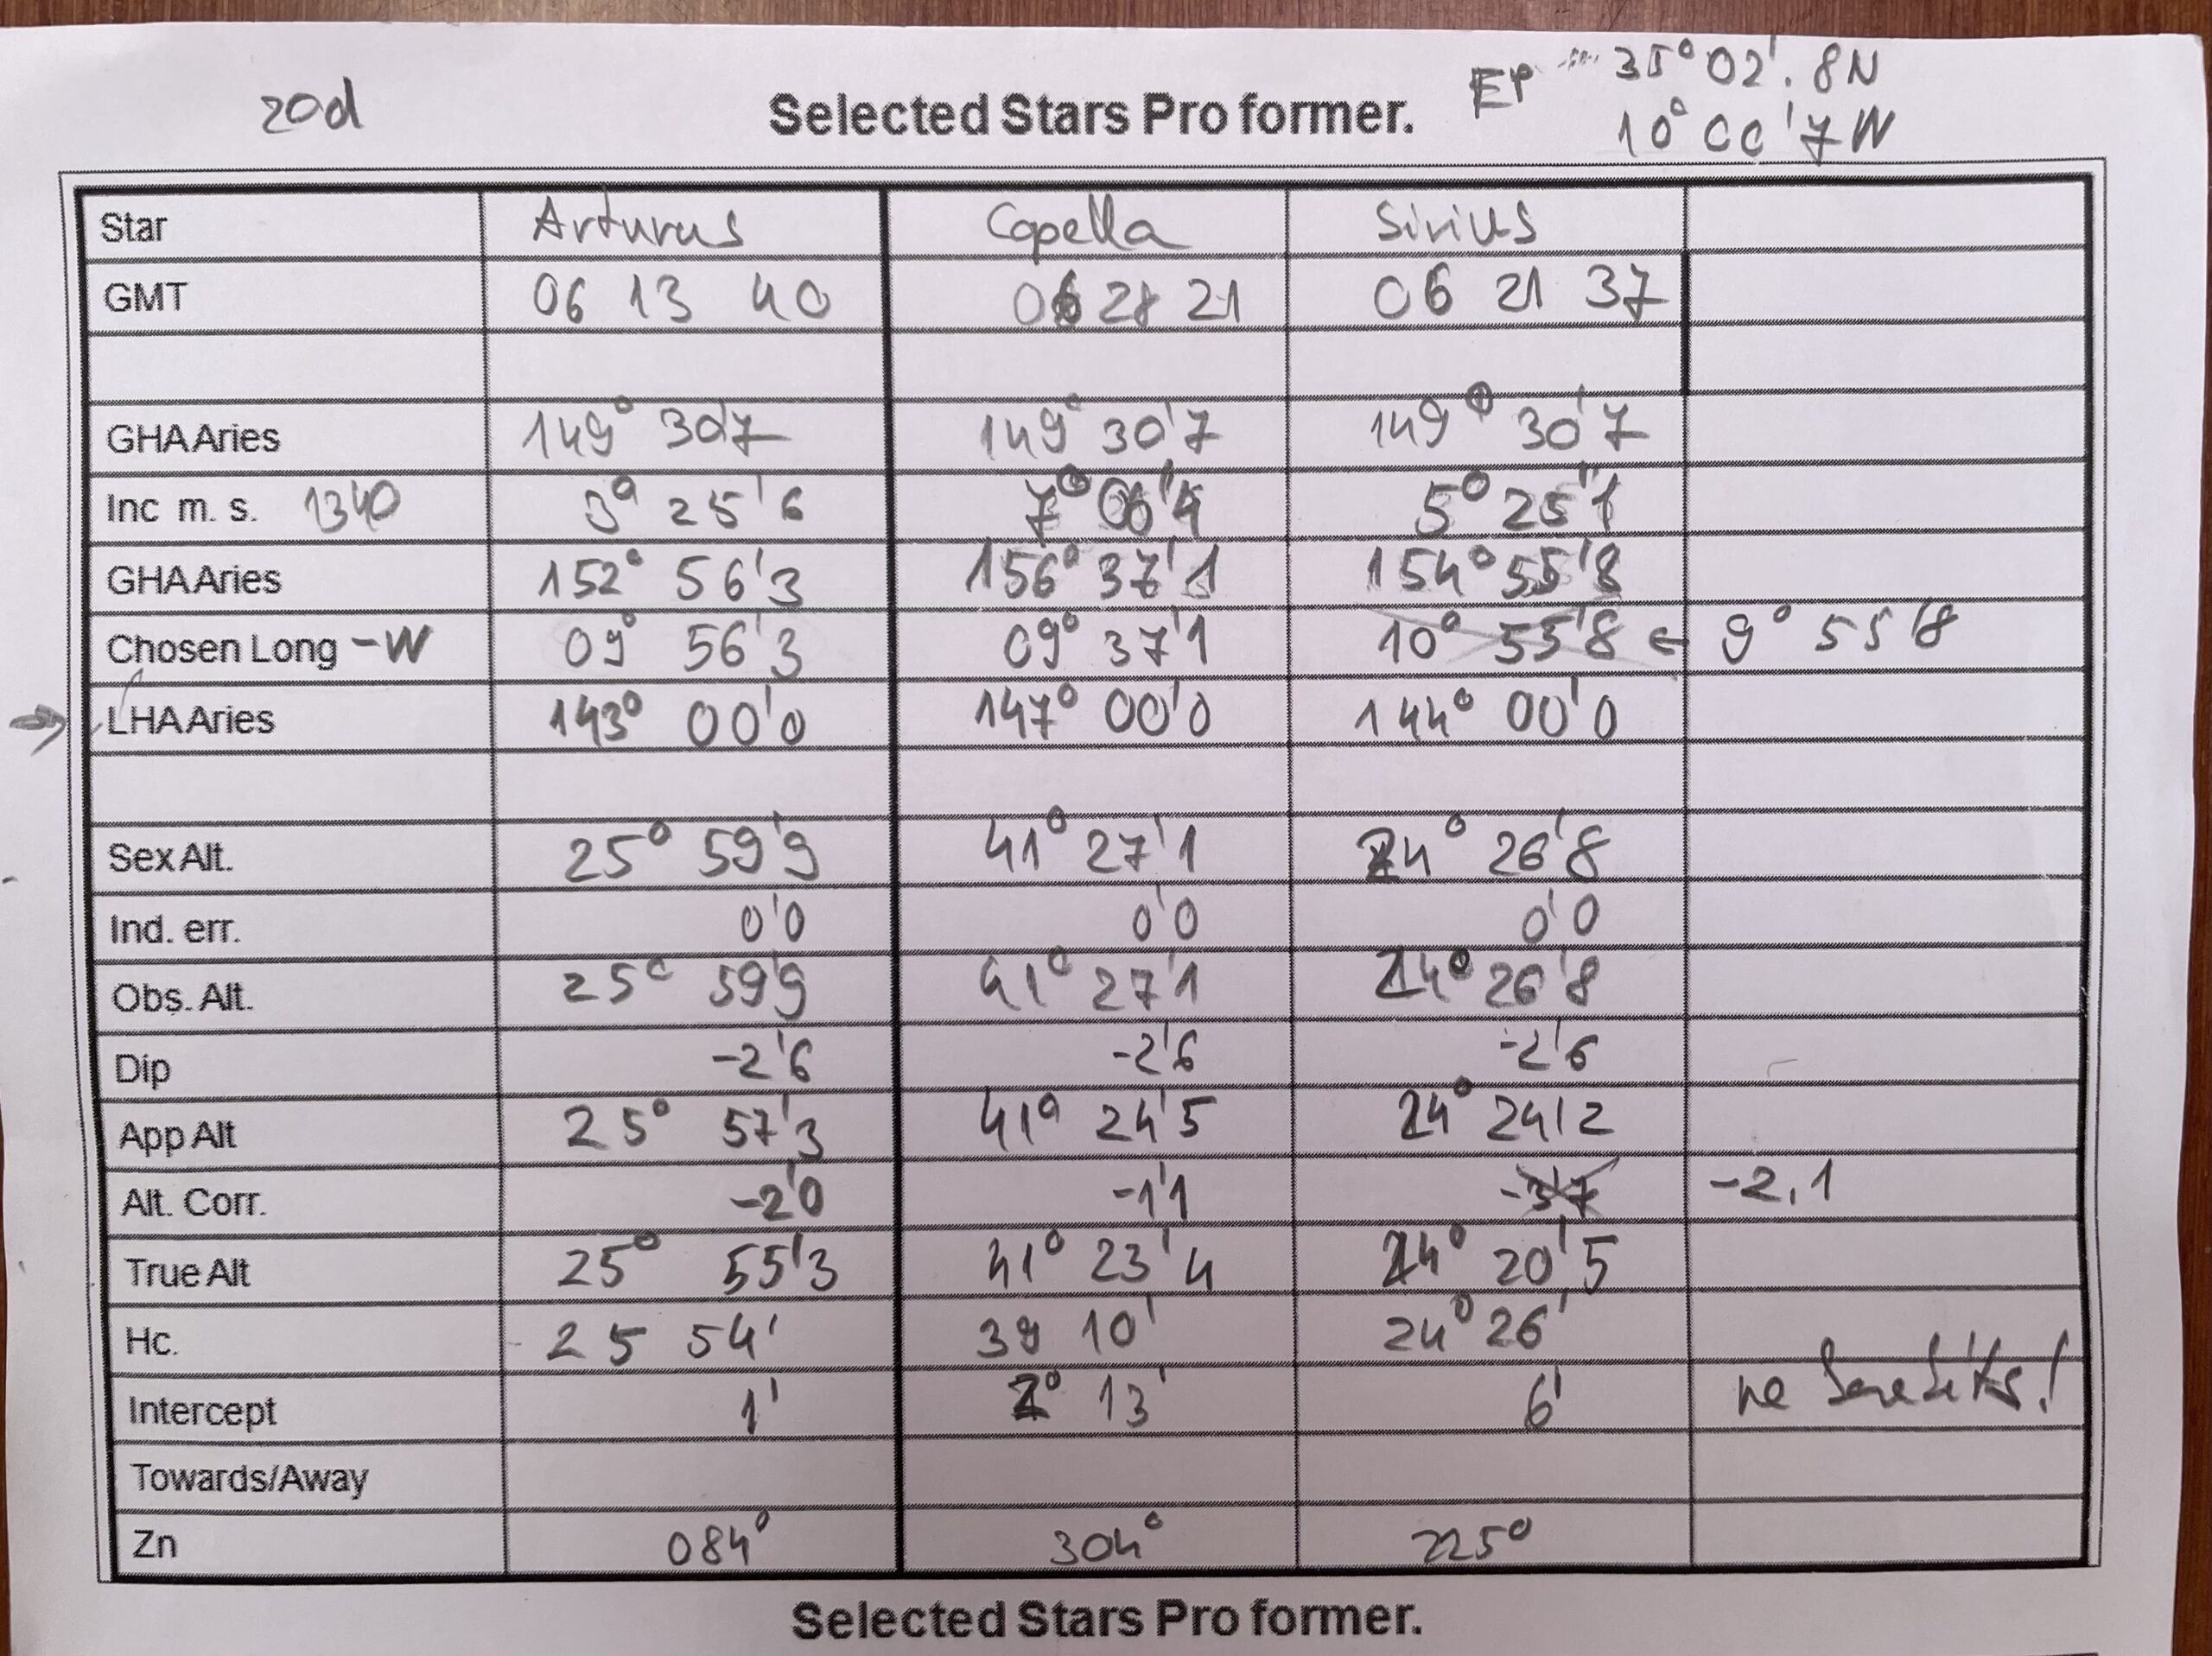 zod Selected Stars Pro former. EP 35° 02'. 8N
10° 00' 7W
Star Arturus Capella Sirius
GMT 06 13 40 06 28 21 06 21 37
GHA Aries 149° 30'7 149° 30'7 149° 30'7
Inc m. s. 1340 3° 25'6 7° 06'4 5° 25'1
GHA Aries 152° 56'3 156° 37'1 154° 55'8
Chosen Long -W 09° 56'3 09° 37'1 10° 55'8 ← 9° 55'8
→ LHA Aries 143° 00'0 147° 00'0 144° 00'0
Sex Alt. 25° 59'9 41° 27'1 24° 26'8
Ind. err. 0'0 0'0 0'0
Obs. Alt. 25° 59'9 41° 27'1 24° 26'8
Dip -2'6 -2'6 -2'6
App Alt 25° 57'3 41° 24'5 24° 24'2
Alt. Corr. -2'0 -1'1 -3'7 -2,1
True Alt 25° 55'3 41° 23'4 24° 20'5
Hc. 25 54' 39 10' 24° 26'
Intercept 1' 2° 13' 6' ne
Towards/Away
Zn 084° 304° 225°
Selected Stars Pro former.